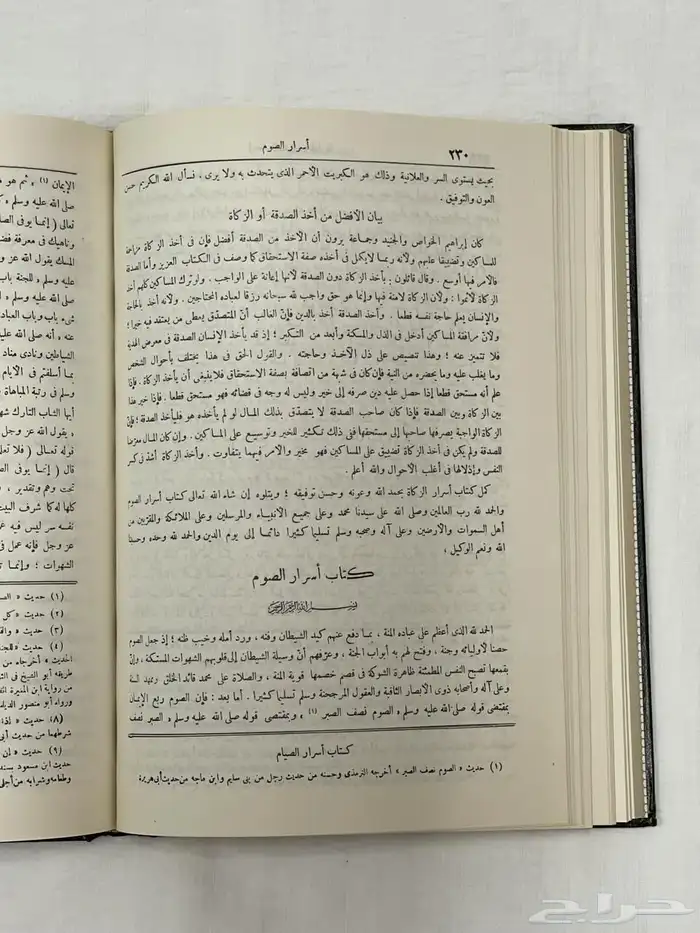 أسرار الصوم
٢٣٠
بحيث يستوى السر والعلانية وذلك هو الكبريت الاحمر الذى يتحدث به ولا يرى . نسأل الله الكريم حسن
العون والتوفيق .
بيان الأفضل من أخذ الصدقة أو الزكاة
كان إبراهيم الخواص والجنيد وجماعة يرون أن الاخذ من الصدقة أفضل فإن فى أخذ الزكاة مزاحمة
للمساكين وتضييقا عليهم ولأنه ربما لا يكمل فى أخذه صفة الاستحقاق كما وصف فى الكتاب العزيز وأما الصدقة
فالامر فيها أوسع . وقال قائلون . بأخذ الزكاة دون الصدقة لأنها إعانة على الواجب . ولو ترك المساكين كلهم أخذ
الزكاة لأثموا : ولأن الزكاة لا منة فيها وإنما هو حق واجب لله سبحانه رزقا لعباده المحتاجين . ولأنه أخذ بالحاجة
والإنسان يعلم حاجة نفسه قطعا . وأخذ الصدقة أخذ بالدين فإن الغالب أن المتصدق يعطى من يعتقد فيه خيرا ؛
ولأن مرافقة المساكين أدخل فى الذل والمسكنة وأبعد من التكبر ؛ إذ قد يأخذ الإنسان الصدقة فى معرض الهدية
فلا تتميز عنه ؛ وهذا تنصيص على ذل الآخذ وحاجته . والقول الحق فى هذا يختلف بأحوال الشخص
وما يغلب عليه وما يحضره من النية فإن كان فى شبهة من اتصافه بصفة الاستحقاق فلا ينبغى أن يأخذ الزكاة . فإذا
علم أنه مستحق قطعا إذا حصل عليه دين صرفه إلى خير وليس له وجه فى قضائه فهو مستحق قطعا . فإذا خير هذا
بين الزكاة وبين الصدقة فإذا كان صاحب الصدقة لا يتصدق بذلك المال لو لم يأخذه هو فليأخذ الصدقة ؛ فإن
الزكاة الواجبة يصرفها صاحبها إلى مستحقها ففى ذلك تكثير للخير وتوسيع على المساكين . وإن كان المال معرضا
للصدقة ولم يكن فى أخذ الزكاة تضييق على المساكين فهو مخير والامر فيهما يتفاوت . وأخذ الزكاة أشد فى كسر
النفس وإذلالها فى أغلب الأحوال والله أعلم .
كمل كتاب أسرار الزكاة بحمد الله وعونه وحسن توفيقه ؛ ويتلوه إن شاء الله تعالى كتاب أسرار الصوم
والحمد لله رب العالمين وصلى الله على سيدنا محمد وعلى جميع الأنبياء والمرسلين وعلى الملائكة والمقربين من
أهل السموات والأرضين وعلى آله وصحبه وسلم تسليما كثيرا دائما إلى يوم الدين والحمد لله وحده وحسبنا
الله ونعم الوكيل ،
كتاب أسرار الصوم
بسم الله الرحمن الرحيم
الحمد لله الذى أعظم على عباده المنة ، بما دفع عنهم كيد الشيطان وفنه ، ورد أمله وخيب ظنه ؛ إذ جعل الصوم
حصنا لأوليائه وجنة ، وفتح لهم به أبواب الجنة ، وعرفهم أن وسيلة الشيطان إلى قلوبهم الشهوات المستكنة ، وإن
بقمعها تصبح النفس المطمئنة ظاهرة الشوكة فى قصم خصمها قوية المنة ، والصلاة على محمد قائد الخلق وممهد السنة
وعلى آله وأصحابه ذوى الأبصار الثاقبة والعقول المرجحنة وسلم تسليما كثيرا . أما بعد : فإن الصوم ربع الإيمان
بمقتضى قوله صلى الله عليه وسلم « الصوم نصف الصبر (١) » وبمقتضى قوله صلى الله عليه وسلم « الصبر نصف
كتاب أسرار الصيام
(١) حديث « الصوم نصف الصبر » أخرجه الترمذى وحسنه من حديث رجل من بنى سليم وابن ماجه من حديث أبى هريرة
الإيمان (١) » ثم هو
صلى الله عليه وسلم
تعالى ( إنما يوفى
وناهيك فى معرفة
المسك يقول الله عز
عليه وسلم « للجنة باب
شىء باب وباب
عنه ، أنه صلى الله عليه
الشياطين ونادى مناد
بما أسلفتم فى الأيام
وسلم فى رتبة المباهاة
أيها الشاب التارك
« يقول الله عز وجل
قوله تعالى ( فلا تعلم
قال ( إنما يوفى
تحت وهم وتقدير ،
كلها له كما شرف البيت
نفسه سر ليس فيه
عز وجل فإنه عمل فى
الشهوات ؛ وإنما
(١) حديث «
(٢) حديث « كل
(٣) حديث «
(٤) حديث «
الحديث » أخرجاه من
(٨) حديث « إذا
(٩) حديث « إن
حراج